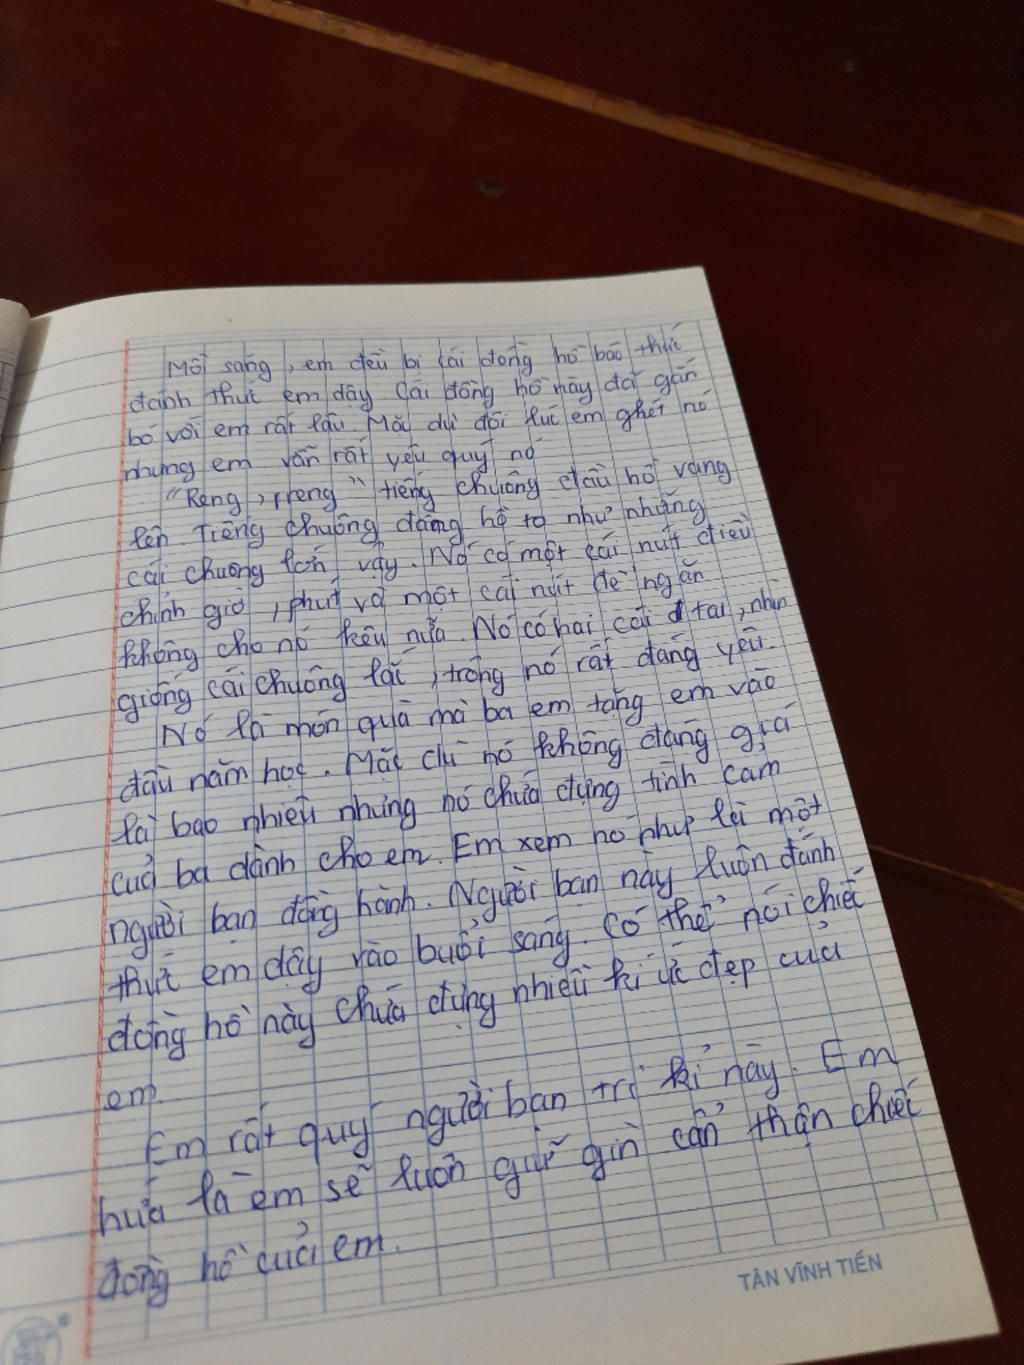 Mỗi sáng, em đều bị cái đồng hồ báo thức
đánh thức em dậy. Cái đồng hồ này đã gắn
bó với em rất lâu. Mặc dù đôi lúc em ghét nó
nhưng em vẫn rất yêu quý nó
"Reng, reng" tiếng chuông đầu hồi vang
lên. Tiếng chuông đồng hồ to như những
cái chuông lớn vậy. Nó có một cái nút điều
chỉnh giờ, phút và một cái nút để ngăn
không cho nó kêu nữa. Nó có hai cái tai, nhìn
giống cái chuông lắc, trông nó rất đáng yêu.
Nó là món quà mà ba em tặng em vào
đầu năm học. Mặc dù nó không đáng giá
là bao nhiêu nhưng nó chứa đựng tình cảm
của ba dành cho em. Em xem nó như là một
người bạn đồng hành. Người bạn này luôn đánh
thức em dậy vào buổi sáng. Có thể nói chiếc
đồng hồ này chứa đựng nhiều kí ức đẹp của
em.
Em rất quý người bạn tri kỉ này. Em
hứa là em sẽ luôn giữ gìn cẩn thận chiếc
đồng hồ của em.
TÂN VĨNH TIẾN